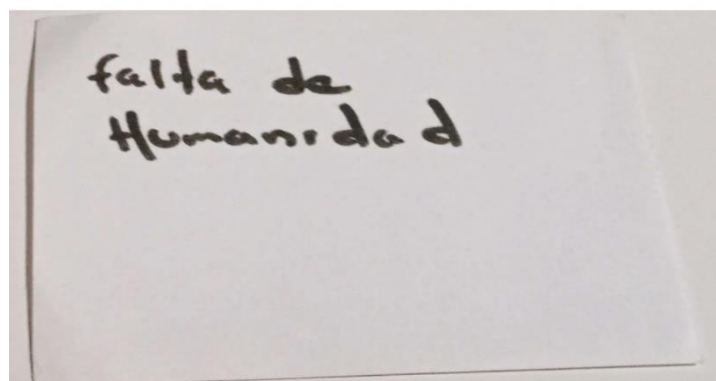 falta de
Humanidad